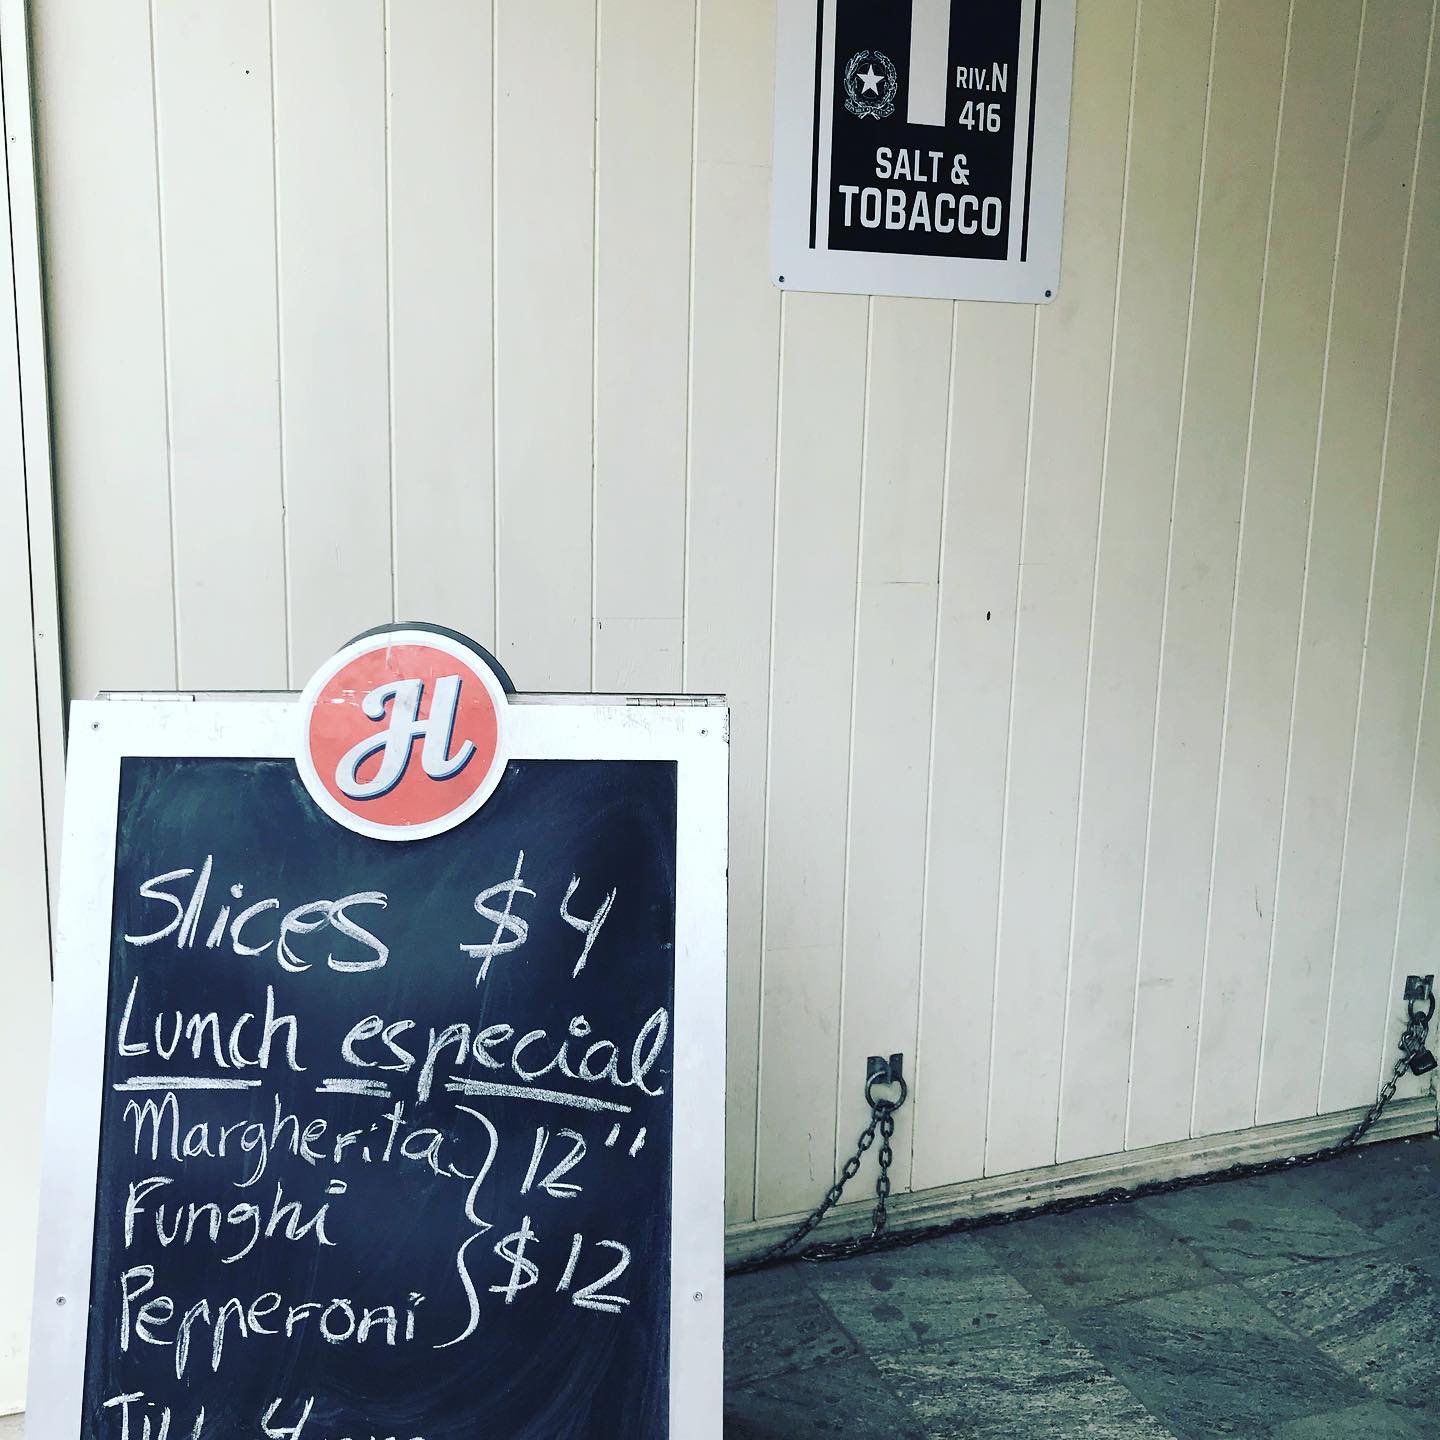 RIV.N
416
SALT &
TOBACCO
H
Slices $4
Lunch especial
Margherita } 12"
Funghi
Pepperoni } $12
Till 4pm